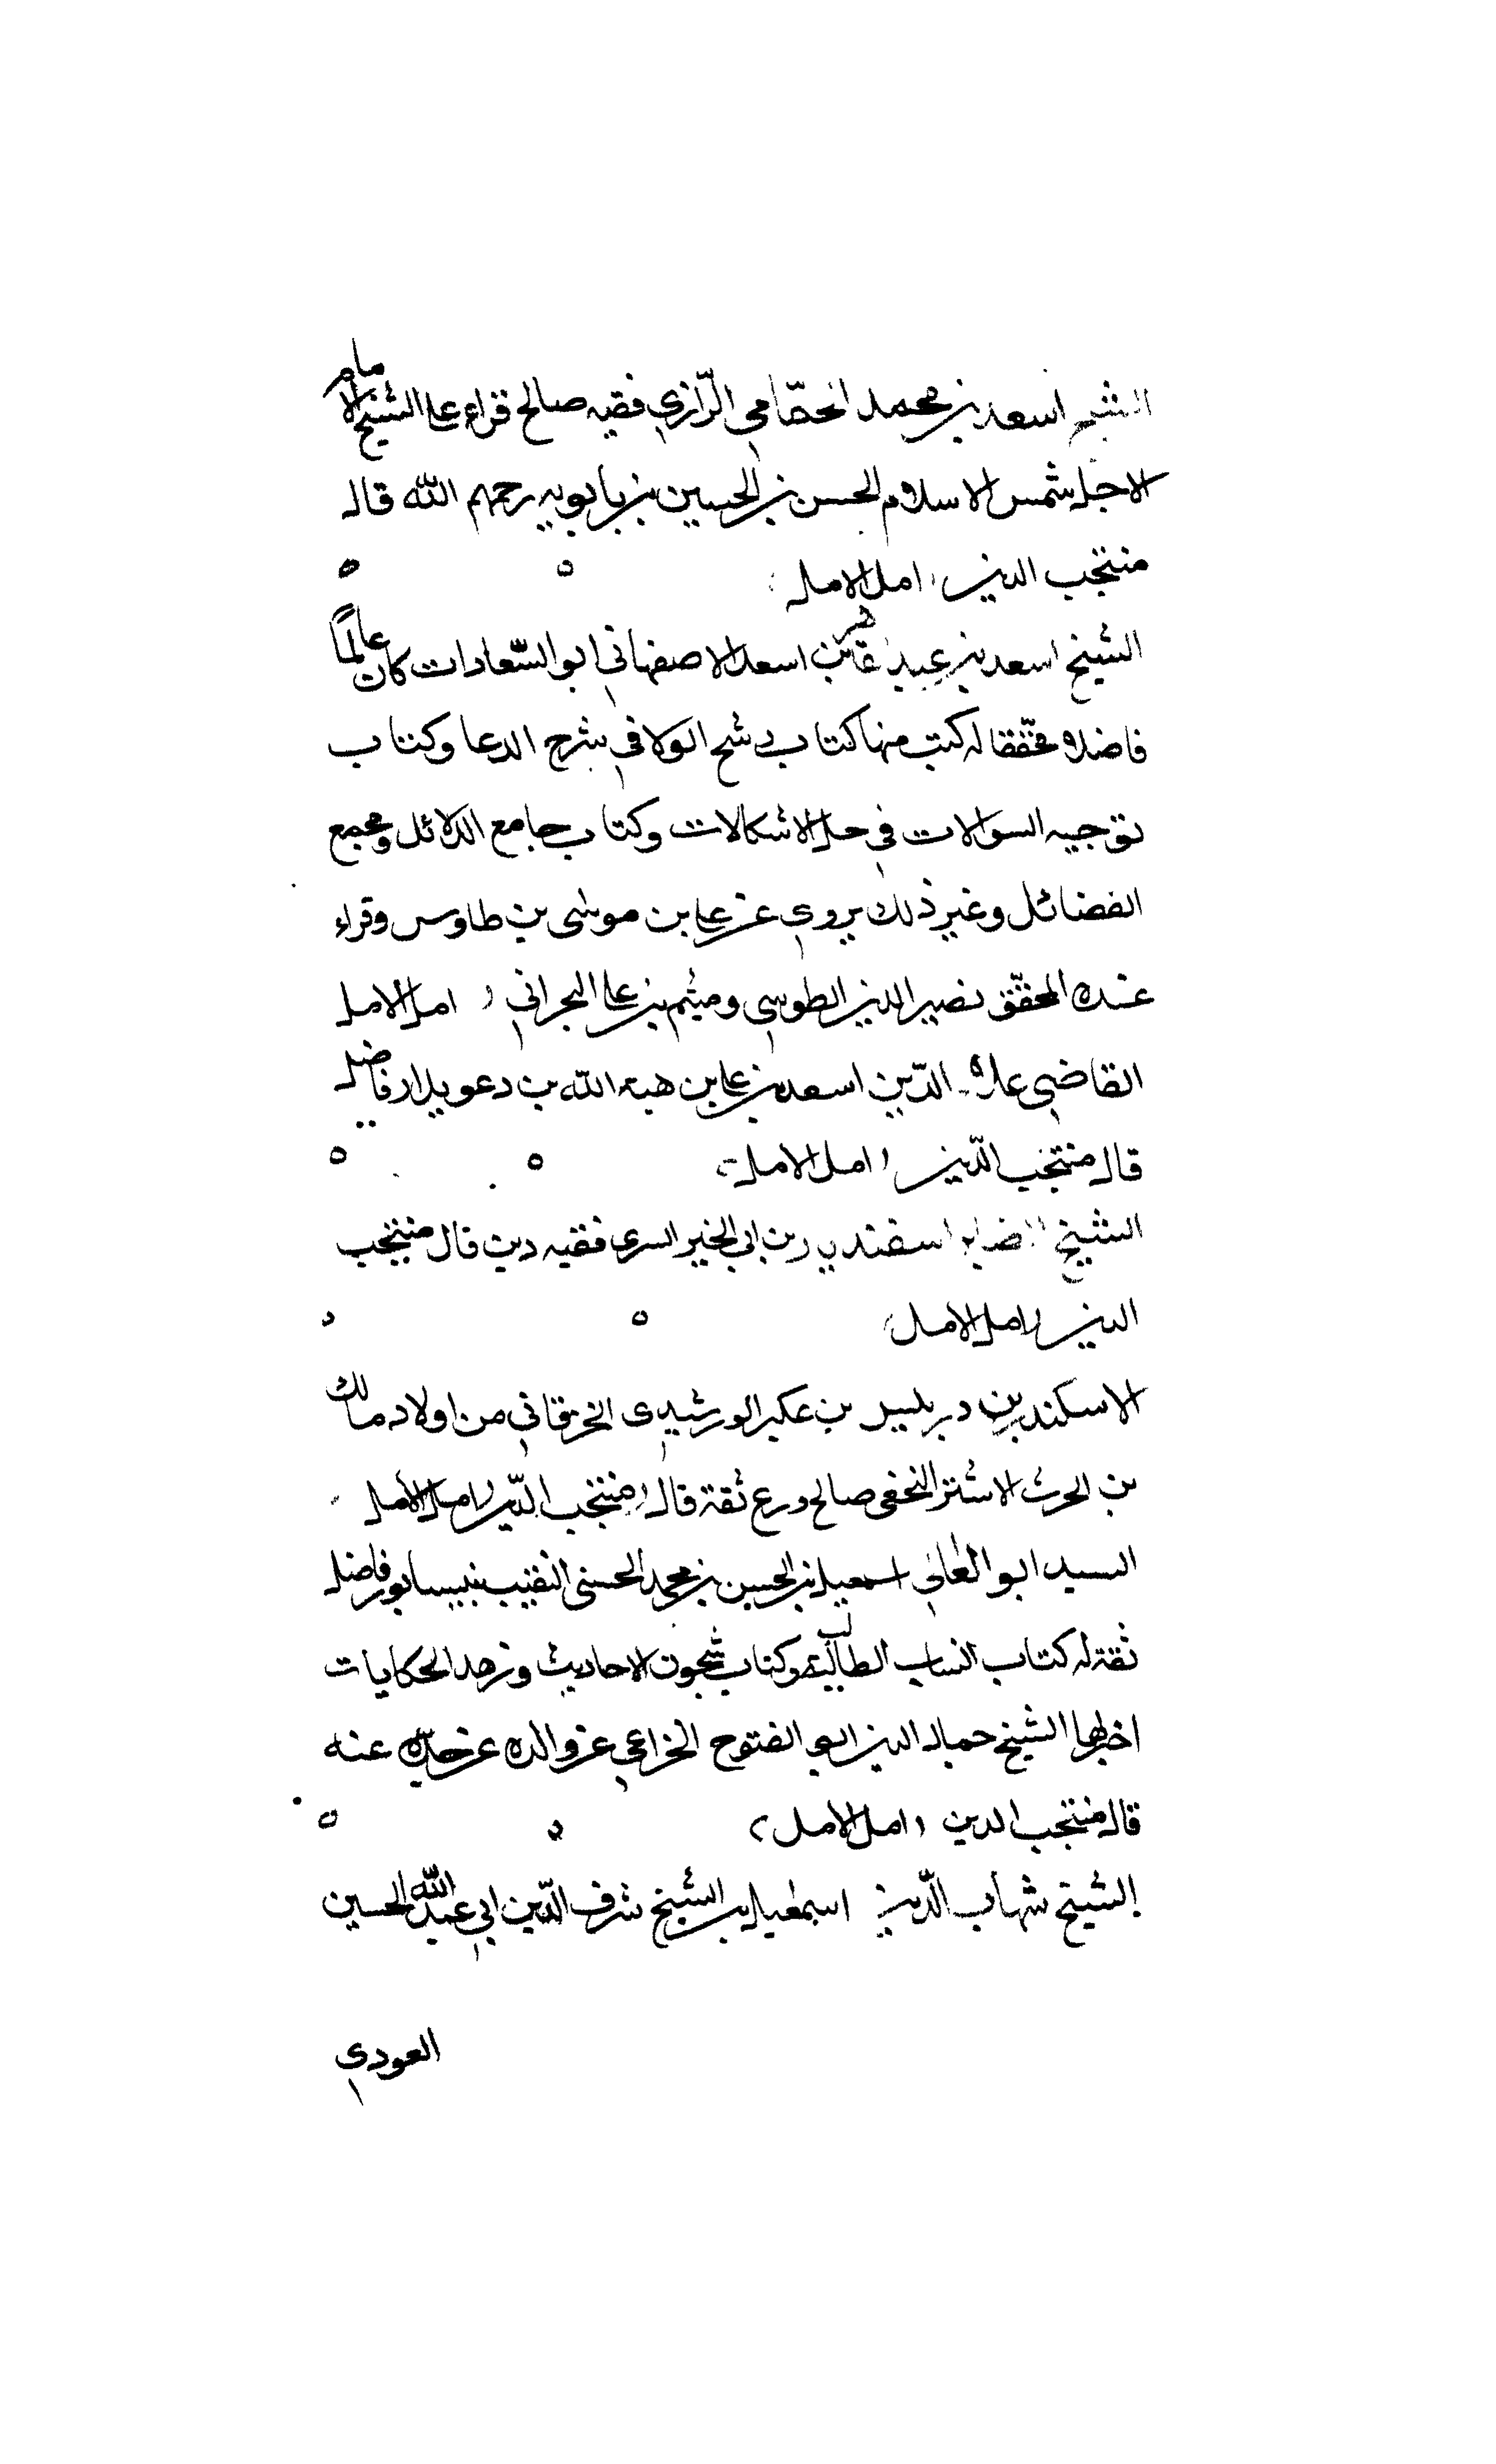 الشيخ اسعد بن محمد الحمّامي الرّازي فقيه صالح قراء على الشيخ الامام
الاجل شمس الاسلام الحسن بن الحسين بن بابويه رحمهم الله قاله
منتجب الدين امل الامل
الشيخ اسعد بن عبد القاهر بن اسعد الاصفهاني ابو السّعادات كان عالمًا
فاضلا محقّقا له كتب منها كتاب رشح الولا في شرح الدعا وكتاب
توجيه السوالات في حل الاشكالات وكتاب جامع الدلائل ومجمع
الفضائل وغير ذلك يروي عن علي بن موسى بن طاوس وقراء
عنده المحقّق نصير الدين الطوسي وميثم بن علي البحراني امل الامل
القاضي علاء الدّين اسعد بن علي بن هبة الله بن دعويدار فاضل
قاله منتجب الدّين امل الامل
الشيخ اسفنديار بن ابي الخير السري فقيه دين قال منتجب
الدين امل الامل
الاسكندر بن دربيس بن عكبر الورشيدي الخرقاني من اولاد مالك
بن الحرث الاشتر النخعي صالح ورع ثقة قاله منتجب الدّين امل الامل
السيد ابو المعالي اسمعيل بن الحسين بن محمد الحسني النقيب بنيسابور فاضل
ثقة له كتاب انساب الطالبية وكتاب شجون الاحاديث وزهد الحكايات
اخبرنا بها الشيخ جمال الدين ابو الفتوح الخزاعي عن والده عن جدّه عنه
قاله منتجب الدين امل الامل
الشيخ شهاب الدّين اسمعيل بن الشيخ شرف الدّين ابي عبد الله الحسين
العودي